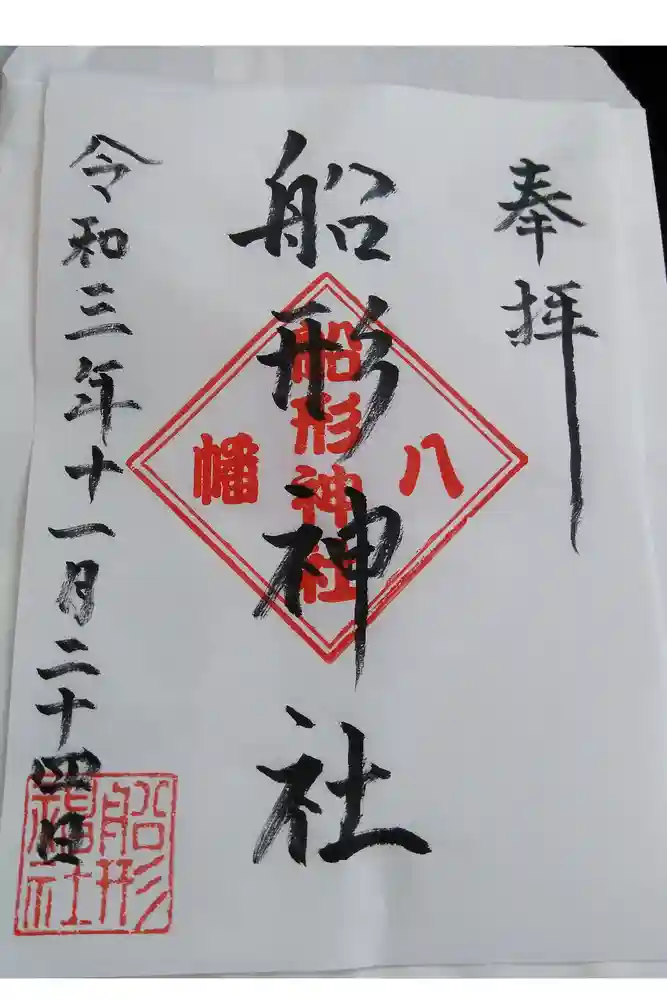 奉拝
船形神社
八幡
船形神社
令和三年十一月二十四日
船形
神社